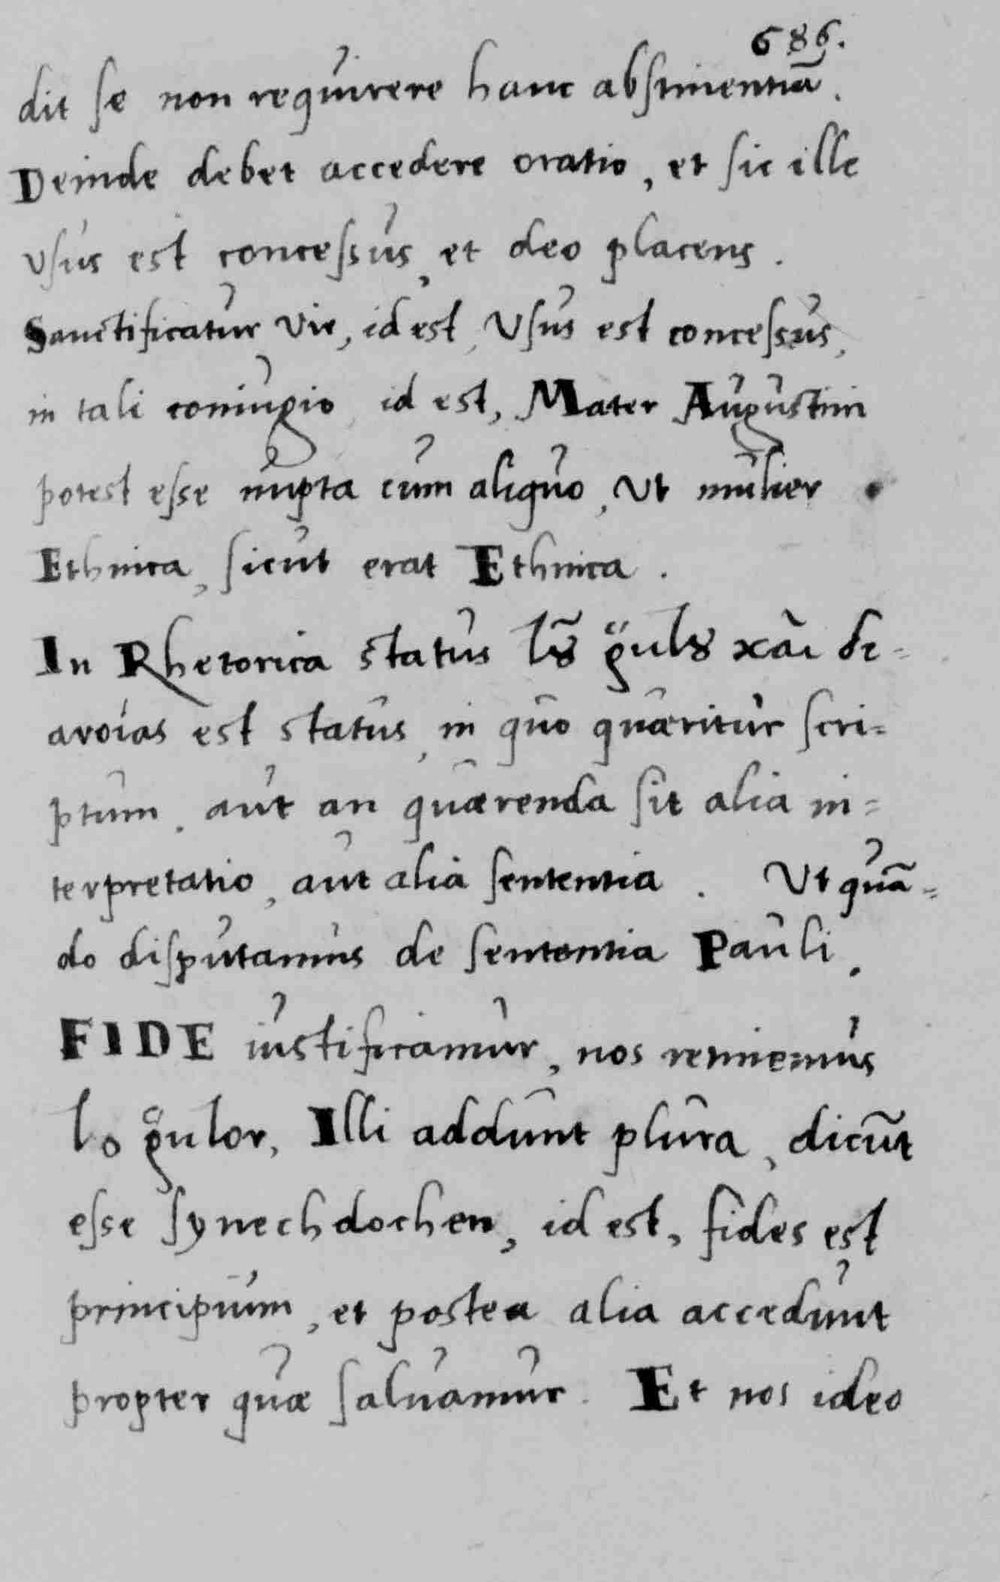 686.
dit se non requirere hanc abstinentiã.
Deinde debet accedere oratio, et sic ille
Usus est concessus, et deo placens.
Sanctificatur Vir, id est, Usus est concessus,
in tali coniugio, id est, Mater Augustini
potest esse nupta cum aliquo, Ut mulier
Ethnica, sicut erat Ethnica.
In Rhetorica status και δι=
ανοίας est status, in quo quæritur scri=
ptum, aut an quærenda sit alia in=
terpretatio, aut alia sententia. Ut quã=
do disputamus de sententia Pauli.
FIDE iustificamur, nos retinemus
Illi addunt plura, dicũt
esse synechdochen, id est, fides est
principium, et postea alia accedunt
propter quæ saluamur. Et nos ideo